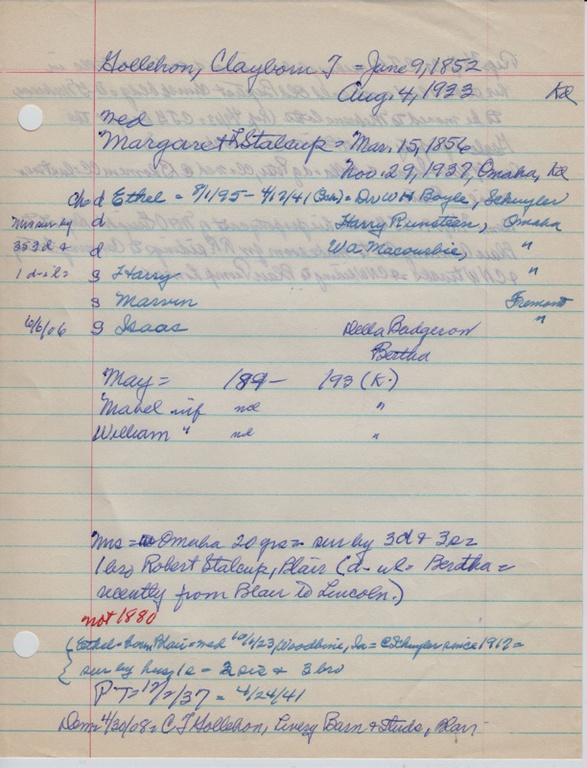 Gollehon, Clayborn T = June 9, 1852
Aug. 4, 1933 Kd
med
Margaret L Stalcup = Mar. 15, 1856
Nov. 29, 1937, Omaha, Kd
chd d Ethel = 8/1/95 - 4/12/41 = Dr W H Boyle, Schuyler
Mrs sur by d Harry Runstien, Omaha
3s 3d + d Wa. Macourbie, "
1 d-il = s Harry "
s Marvin Fremont
6/6/06 s Isaac Della Badgerow "
Bertha
May = 189- 193 (K.)
Mabel inf nd "
William " nd "
Mrs = Omaha 20 yrs = sur by 3d + 3s =
1 bro Robert Stalcup, Blair (d-il = Bertha =
recently from Blair to Lincoln.)
not 1880
Ethel = born Blair = med 10/1/23, Woodbine, Ia = Schuyler since 1917 =
sur by hus, 1s - 2 sis + 3 bro
P T = 12/2/37 = 4/24/41
Dem = 4/30/08 = C T Gollehon, Livery Barn + Studs, Blair